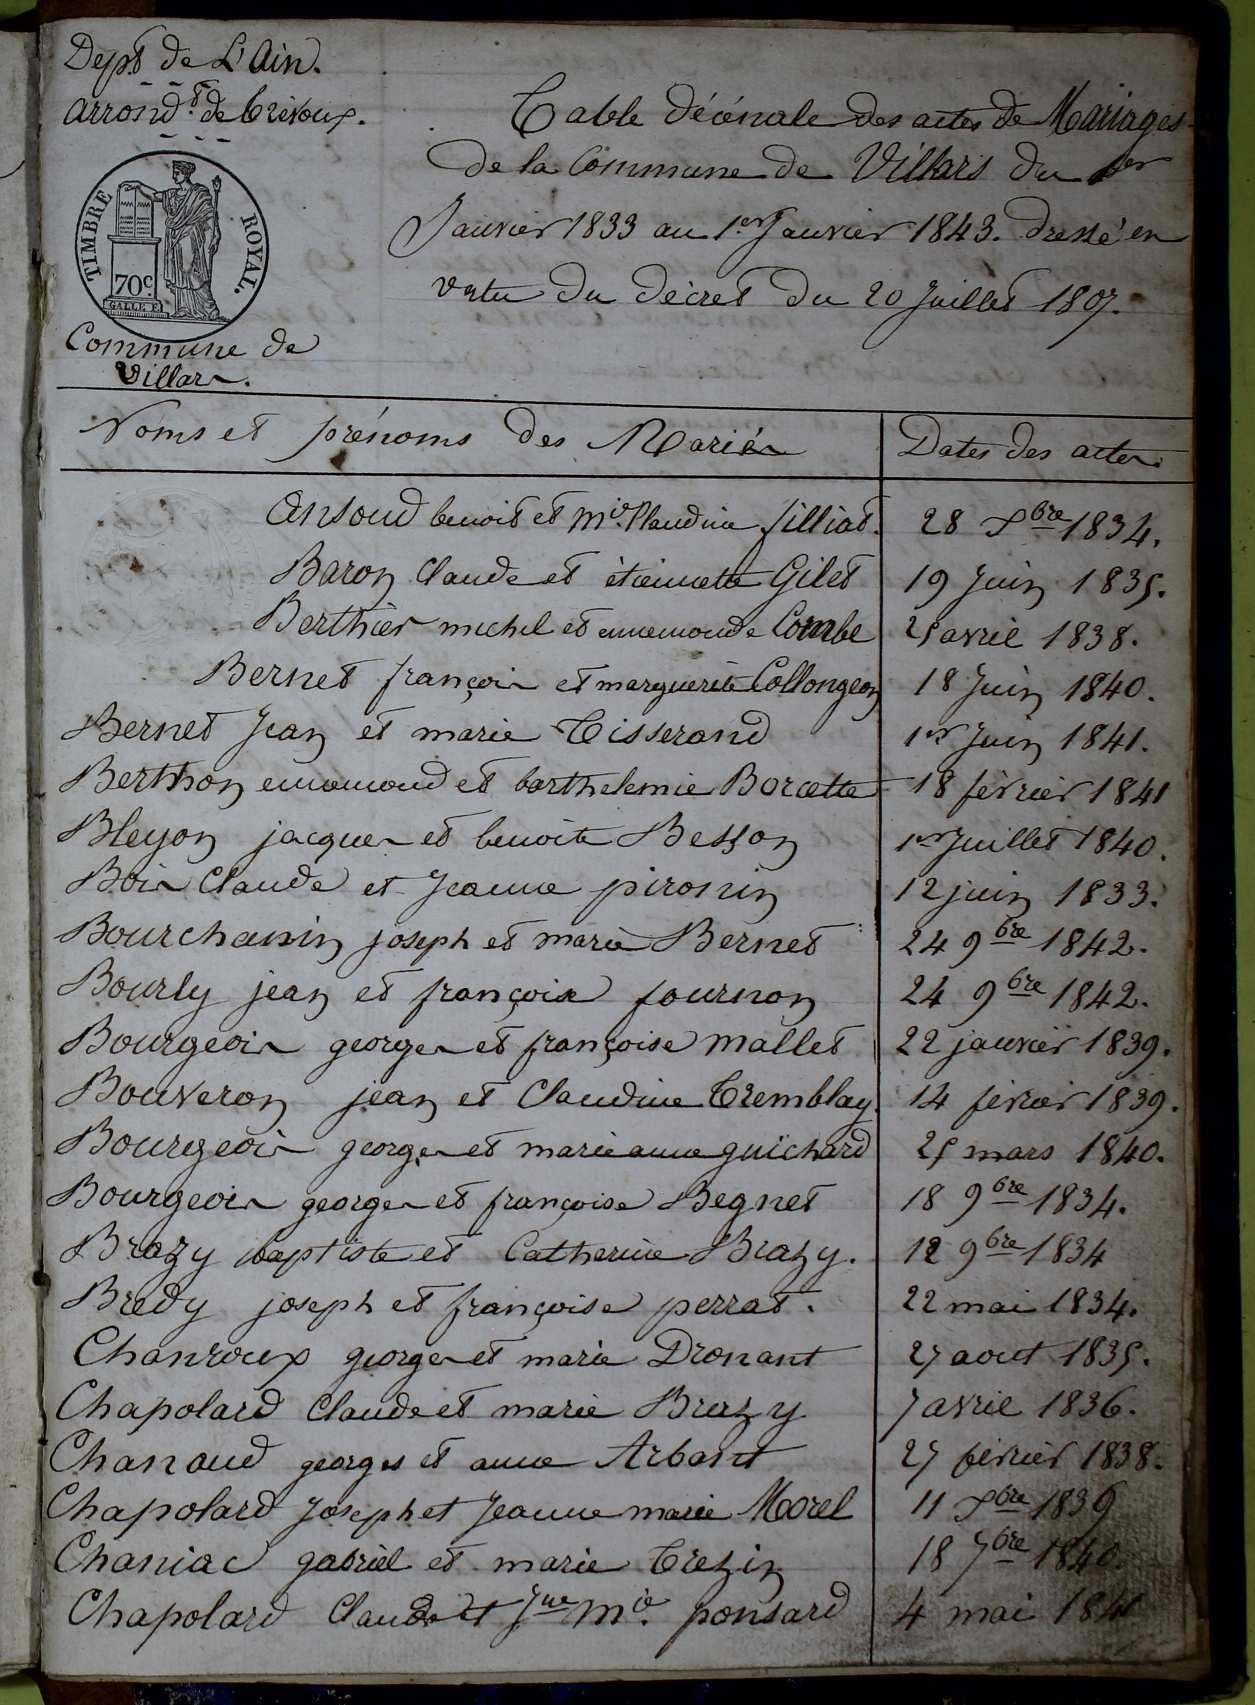 Dept de L'Ain.
arrondt de trévoux.
Table décénale des actes de Mariages
de la Commune de Villars du 1er
Janvier 1833 au 1er Janvier 1843. dressé en
vertu du décret du 20 Juillet 1807.
TIMBRE ROYAL.
70c.
Commune de
Villars.
Noms et prénoms des Mariés
Dates des actes.
benoit et Mie Claudine filliat. 28 Xbre 1834.
Baron Claude et étiennette Gilet 19 Juin 1835.
Berthier michel et ennemonde Combe 25 avril 1838.
Bernet françois et marguerite Collongeon 18 Juin 1840.
Bernet Jean et marie Tisserand 1er Juin 1841.
Berthon ennemond et barthelemie Borcette 18 février 1841
Bleyon jacques et benoite Besson 1er Juillet 1840.
Bois Claude et Jeanne pironin 12 juin 1833.
Bourchanin joseph et marie Bernet 24 9bre 1842.
Bourly jean et françoise fournon 24 9bre 1842.
Bourgeois georges et françoise mallet 22 janvier 1839.
Bouveron jean et Claudine Tremblay. 14 février 1839.
Bourgeois georges et marie anne guichard 25 mars 1840.
Bourgeois georges et françoise Begnet 18 9bre 1834.
Brazy baptiste et Catherine Brazy. 12 9bre 1834
Bredy joseph et françoise perrat. 22 mai 1834.
Chanroux georges et marie Dronant 27 aout 1835.
Chapolard Claude et marie Brazy 7 avril 1836.
Chanaud georges et anne Arbant 27 février 1838.
Chapolard Joseph et Jeanne marie Morel 11 Xbre 1839
Chaniac gabriel et marie Trezin 18 7bre 1840.
Chapolard Claude et Jne Mie ponsard 4 mai 1841